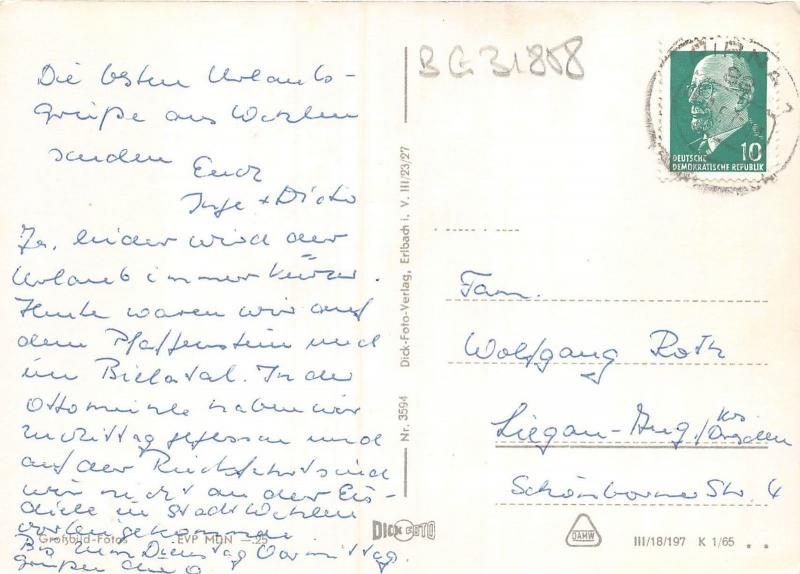 Die besten Urlaubs-
grüße aus Wehlen
senden Euch
Inge + Dieter
Ja, leider wird der
Urlaub immer kürzer.
Heute waren wir auf
dem Pfaffenstein und
im Bielatal. In der
Ottomühle haben wir
zu Mittag gegessen und
auf der Rückfahrt sind
wir nicht an der Eis-
diele in Stadt Wehlen
vorbeigekommen
Bis zum Dienstag Vormittag.
grüßen
Großbild-Fotos EVP MDN —.25
BG 31858
Nr. 3594 Dick-Foto-Verlag, Erlbach i. V. III/23/27
DICK FOTO
10
DEUTSCHE
DEMOKRATISCHE REPUBLIK
Fam.
Wolfgang Roth
Liegau-Aug./Krs
Dresden
Schönborner Str. 4
DAMW
III/18/197 K 1/65